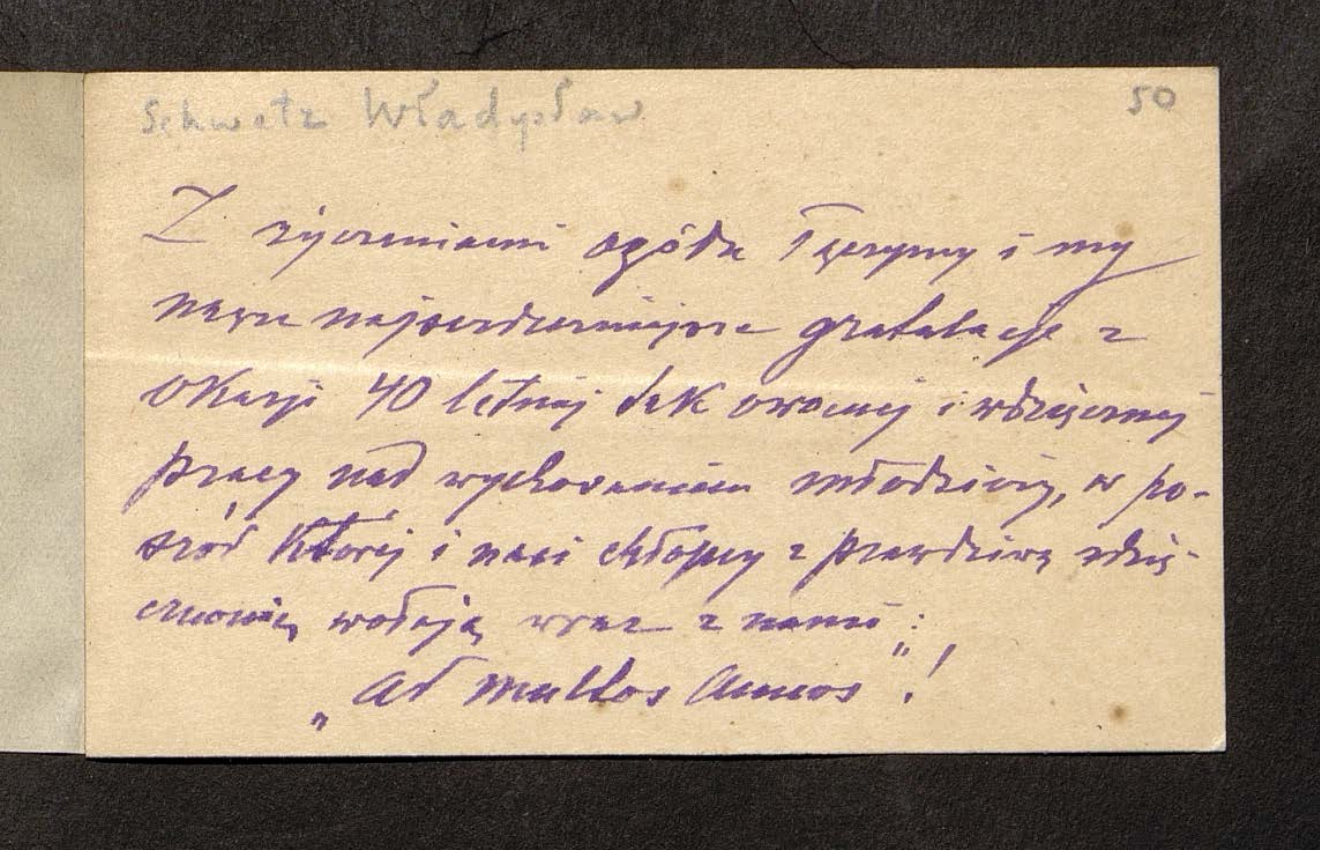 Schwetz Władysław
50
Z życzeniami ogółu łączymy i my
nasze najserdeczniejsze gratulacje z
okazji 40 letniej tak owocnej i wdzięcznej
pracy nad wychowaniem młodzieży, w po-
śród której i nasi chłopcy z prawdziwą wdzię-
cznością wołają wraz z nami:
„Ad multos annos"!